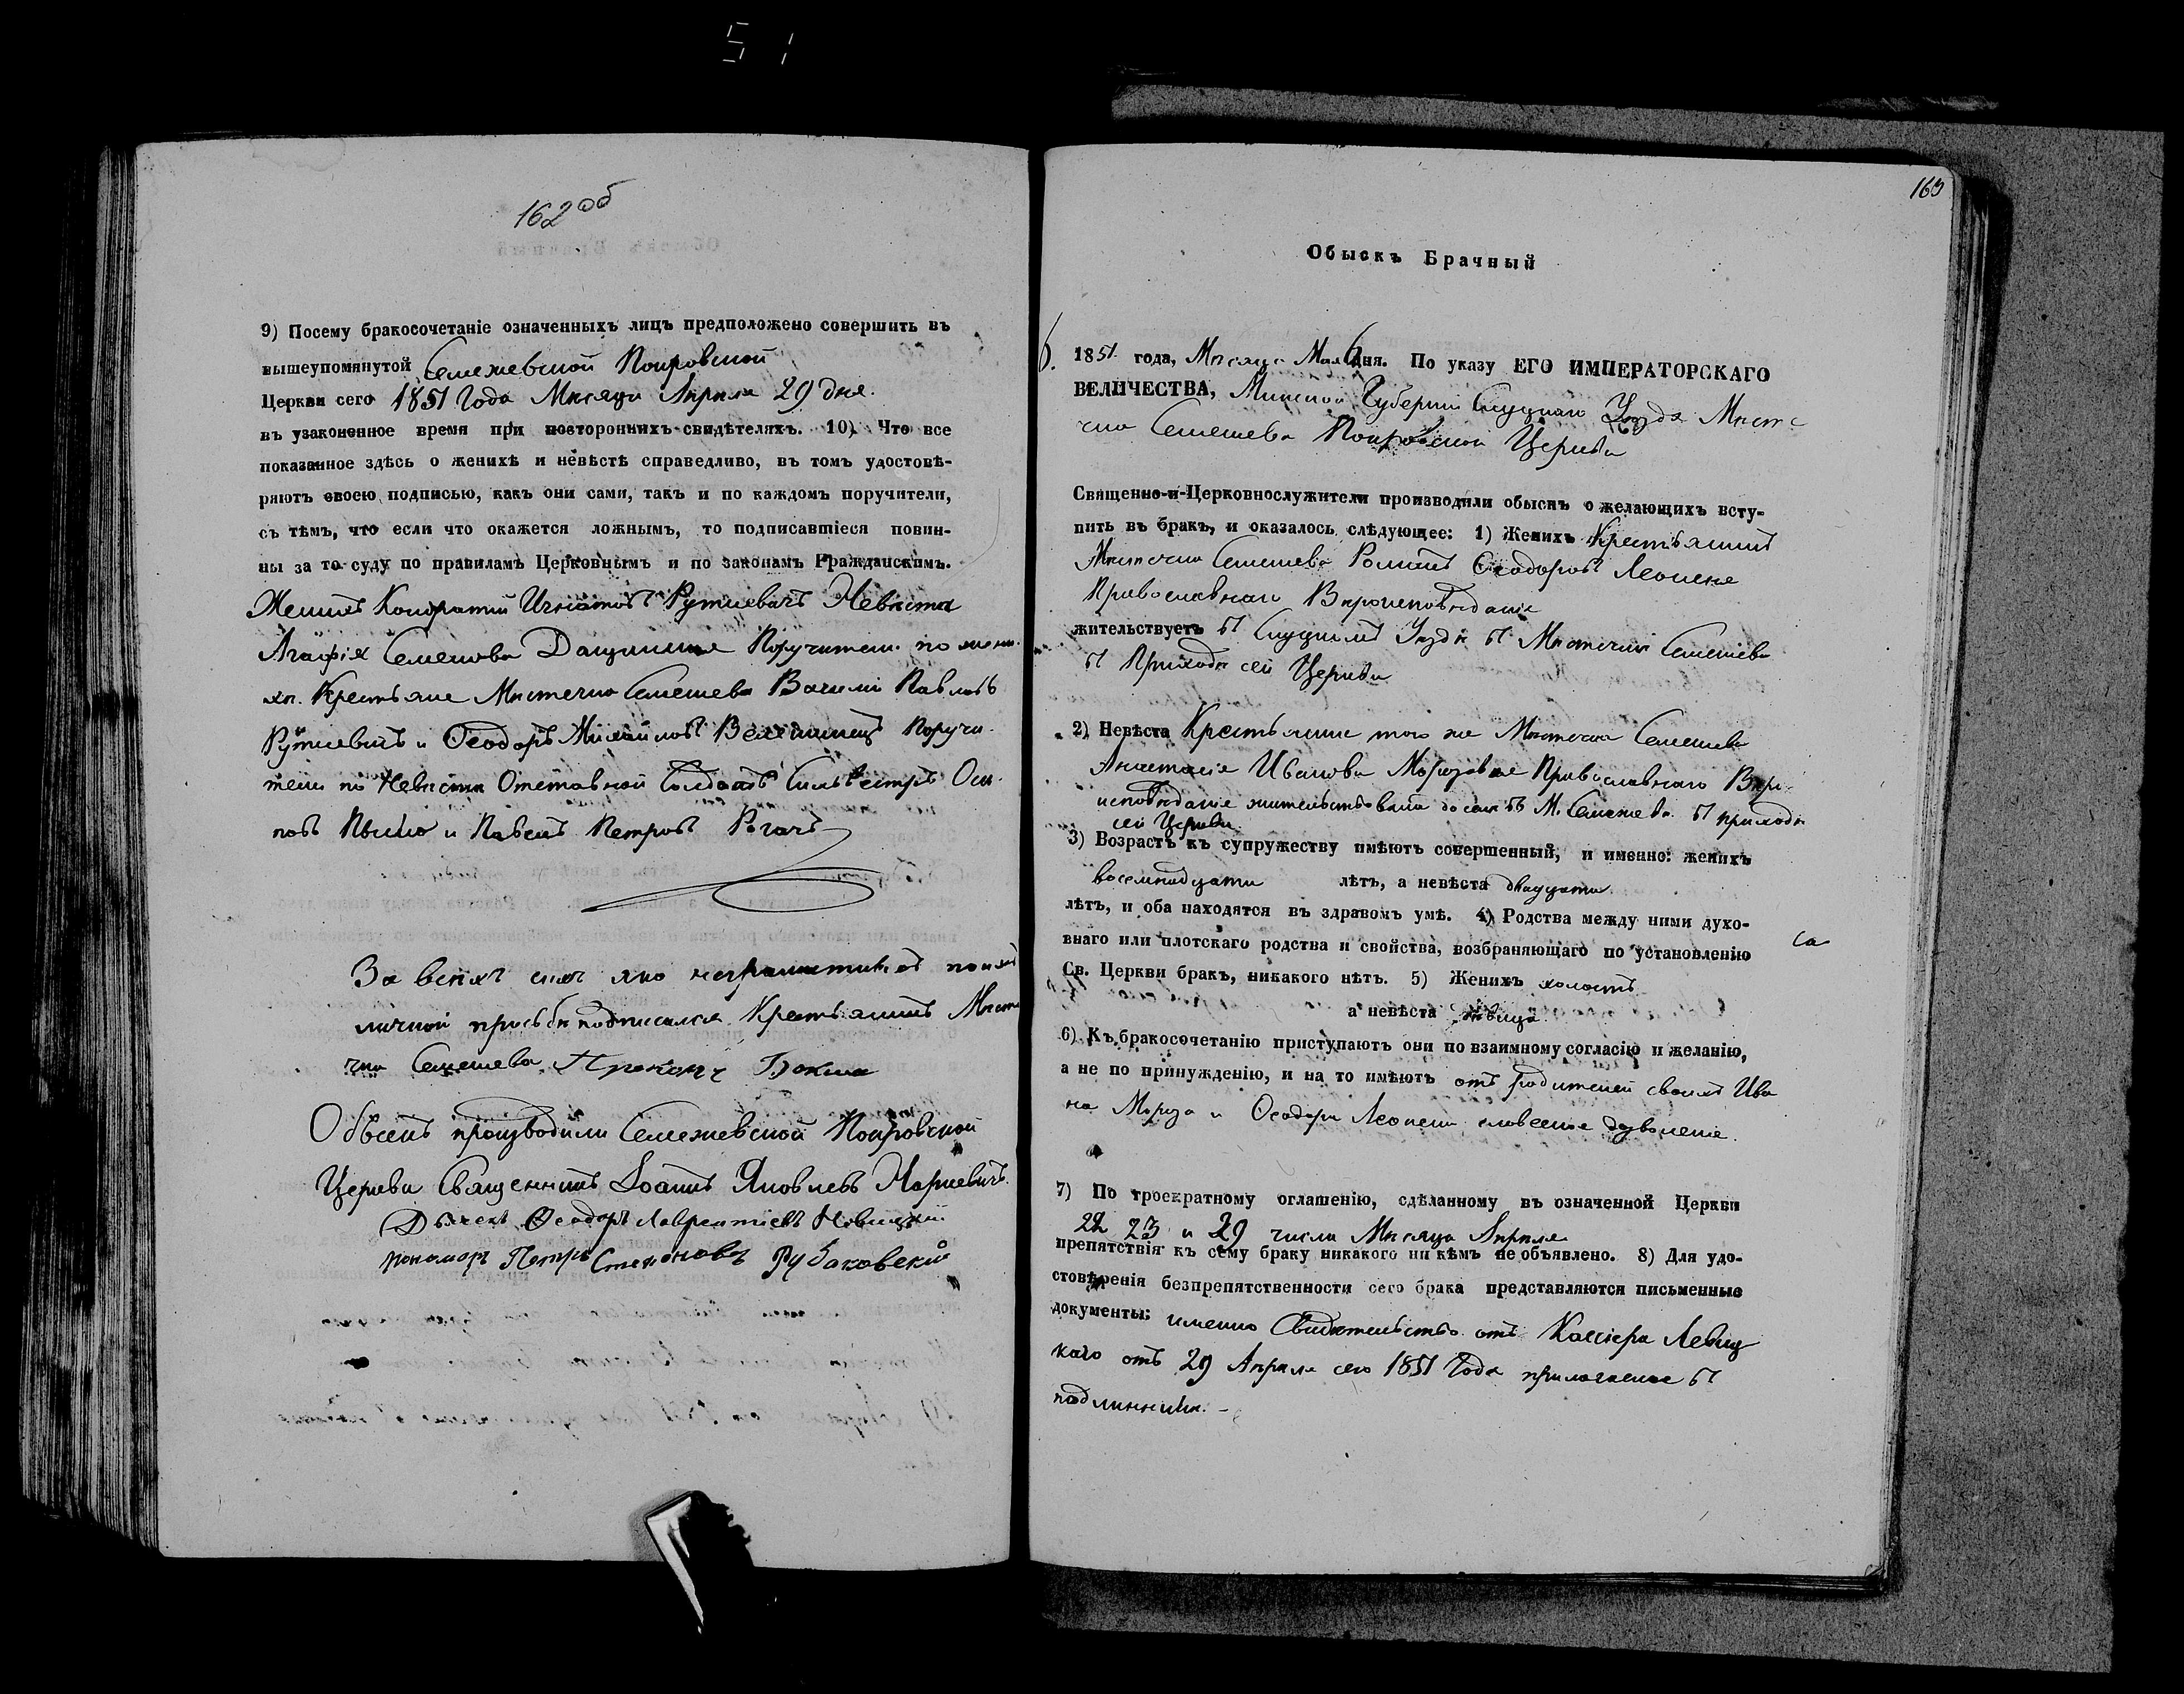 51
162 об
9) Посему бракосочетаніе означенныхъ лицъ предположено совершить въ
вышеупомянутой Семежевской Покровской
Церкви сего 1851 Года Мѣсяца Апрѣля 29 дня.
въ узаконенное время при постороннихъ свидѣтеляхъ. 10) Что все
показанное здѣсь о женихѣ и невѣстѣ справедливо, въ томъ удостовѣ-
ряютъ своею подписью, какъ они сами, такъ и по каждомъ поручители,
съ тѣмъ, что если что окажется ложнымъ, то подписавшіеся повин-
ны за то суду по правиламъ Церковнымъ и по законамъ Гражданскимъ.
Женихъ Кондратій Игнатовъ Руткевичъ Невѣста
Агафія Семенова Поручители по жени-
хѣ. Крестьяне Мѣстечка Семежева Василій Павловъ
Руткевичъ и Ѳеодоръ Михайловъ Поручи-
тели по Невѣстѣ Отставной Солдатъ Сильвестръ Оси-
повъ и Павелъ Петровъ Рогачъ
За всѣхъ сихъ яко неграмотныхъ по ихъ
личной прозьбѣ подписался Крестьянинъ Мѣсте
чка Семежева Прокопъ Бокша
Обыскъ производили Семежевской Покровской
Церкви Священникъ Іоаннъ Яковлевъ
Дьячекъ Ѳеодоръ Лаврентіевъ Новицкій
пономарь Петръ Стефановъ Рубаковскій
163
Обыскъ Брачный
6. 1851 года, Мѣсяца Мая 6 дня. По указу ЕГО ИМПЕРАТОРСКАГО
ВЕЛИЧЕСТВА, Минской Губерніи Слуцкаго Уѣзда Мѣсте
чка Семежева Покровской Церкви
Священно-и-Церковнослужители производили обыскъ о желающихъ всту-
пить въ бракъ, и оказалось слѣдующее: 1) Женихъ Крестьянинъ
Мѣстечка Семежева Романъ Ѳеодоровъ
Православнаго Вѣроисповѣданія
жительствуетъ въ Слуцкомъ Уѣздѣ въ Мѣстечкѣ Семежевѣ
въ Приходѣ сей Церкви
2) Невѣста Крестьянка того же Мѣстечка Семежева
Анастасія Иванова Морозовна Православнаго Вѣро
исповѣданія жительствовала до селѣ въ М. Семежевѣ въ приходѣ
сей Церкви
3) Возрастъ къ супружеству имѣютъ совершенный, и именно: женихъ
восемнадцати лѣтъ, а невѣста двадцати
лѣтъ, и оба находятся въ здравомъ умѣ. 4) Родства между ними духо-
внаго или плотскаго родства и свойства, возбраняющаго по установленію
Св. Церкви бракъ, никакого нѣтъ. 5) Женихъ холостъ
а невѣста дѣвица
6) Къ бракосочетанію приступаютъ они по взаимному согласію и желанію,
а не по принужденію, и на то имѣютъ отъ родителей своихъ Ива
на Мороза и Ѳеодора словесное дозволеніе.
7) По троекратному оглашенію, сдѣланному въ означенной Церкви
22 23 и 29 числа Мѣсяца Апрѣля
препятствія къ сему браку никакого ни кѣмъ не объявлено. 8) Для удо-
стовѣренія безпрепятственности сего брака представляются письменные
документы: именно Свидѣтельство отъ Кассира Левиц
каго отъ 29 Апрѣля сего 1851 Года прилагаемое въ
подлинникѣ. -